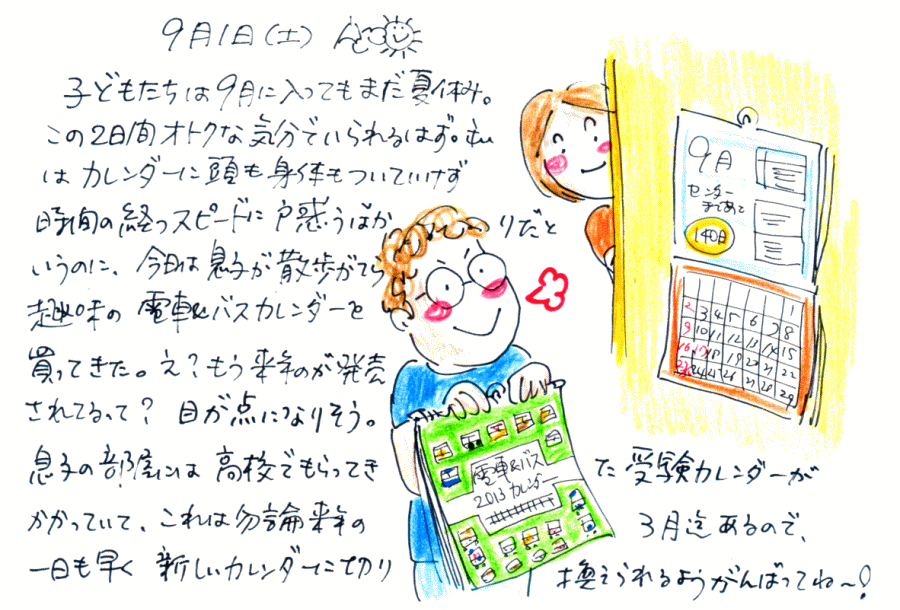 9月1日(土)
子どもたちは9月に入ってもまだ夏休み。
この2日間オトクな気分でいられるはず。私
はカレンダーに頭も身体もついていけず
時間の経つスピードに戸惑うばかりだと
いうのに、今日は息子が散歩がてら
趣味の電車&バスカレンダーを
買ってきた。え?もう来年のが発売
されてるって?目が点になりそう。
息子の部屋には高校でもらってきた受験カレンダーが
かかっていて、これは勿論来年の3月迄あるので、
一日も早く新しいカレンダーに切り換えられるようがんばってね〜!
9月
センター
まであと
140日
1
2 3 4 5 6 7 8
9 10 11 12 13 14 15
16 17 18 19 20 21 22
23 24 25 26 27 28 29
電車&バス
2013カレンダー